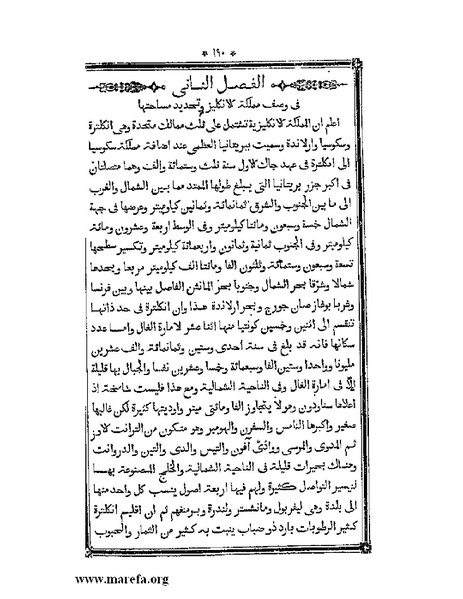 * ١٩٠ *
الفصل الثاني
في وصف مملكة كلانكليز وتحديد مساحتها
اعلم ان المملكة كلانكليزية تشتمل على ثلث ممالك متحدة وهي انكلترة
وسكوسيا وارلاندة وسميت ببريتانيا العظمى عند اضافة مملكة سكوسيا
الى انكلترة في عهد جاك كلاول سنة ثلث وستمائة والف وهما متصلتان
في اكبر جزر بريتانيا التي يبلغ طولها الممتد مما بين الشمال والغرب
الى ما بين الجنوب والشرق ثمانمائة وثمانين كيلوميتر وعرضها في جهة
الشمال خمسة وسبعون ومائتا كيلوميتر وفي الوسط اربعة وعشرون ومائة
كيلوميتر وفي الجنوب ثمانية وثمانون واربعمائة كيلوميتر وتكسير سطحها
تسعة وسبعون وستمائة وثلثون الفا ومائتا الف كيلوميتر مربعا ويحدها
شمالا وشرقا بحر الشمال وجنوبا بحر المانش الفاصل بينها وبين فرنسا
وغربا بوغاز صان جورج وبحر ارلاندة هذا وان انكلترة في حد ذاتها
تنقسم الى اثنين وخمسين كونتيا منها اثنا عشر لامارة الغال وامسا عدد
سكانها فانه قد بلغ في سنة احدى وستين وثمانمائة والف عشرين
مليونا وواحدا وستين الفا وسبعمائة وخمسا وعشرين نفسا والجبال بها قليلة
الا في امارة الغال وفي الناحية الشمالية ومع هذا فليست شامخة اذ
اعلاها سناودون وهو لا يتجاوز الفا ومائتي ميتر واوديتها كثيرة لكن غالبها
صغير واكبرها التامس والسفرن والهومبر وهو متكون من الترانت كلاوز
ثم المدوى والمرسي ووادي آفون والتيس والدي والتين والدروانت
وهناك بحيرات قليلة في الناحية الشمالية والخلج المصنوعة بهسا
لتيسير التواصل كثيرة ولهم فيها اربعة اصول ينسب كل واحد منها
الى بلدة وهي ليفربول ومانشستر ولندرة وبرمنغهم ثم ان اقليم انكلترة
كثير الرطوبات بارد ذو ضباب ينبت به كثير من الثمار والحبوب
www.marefa.org